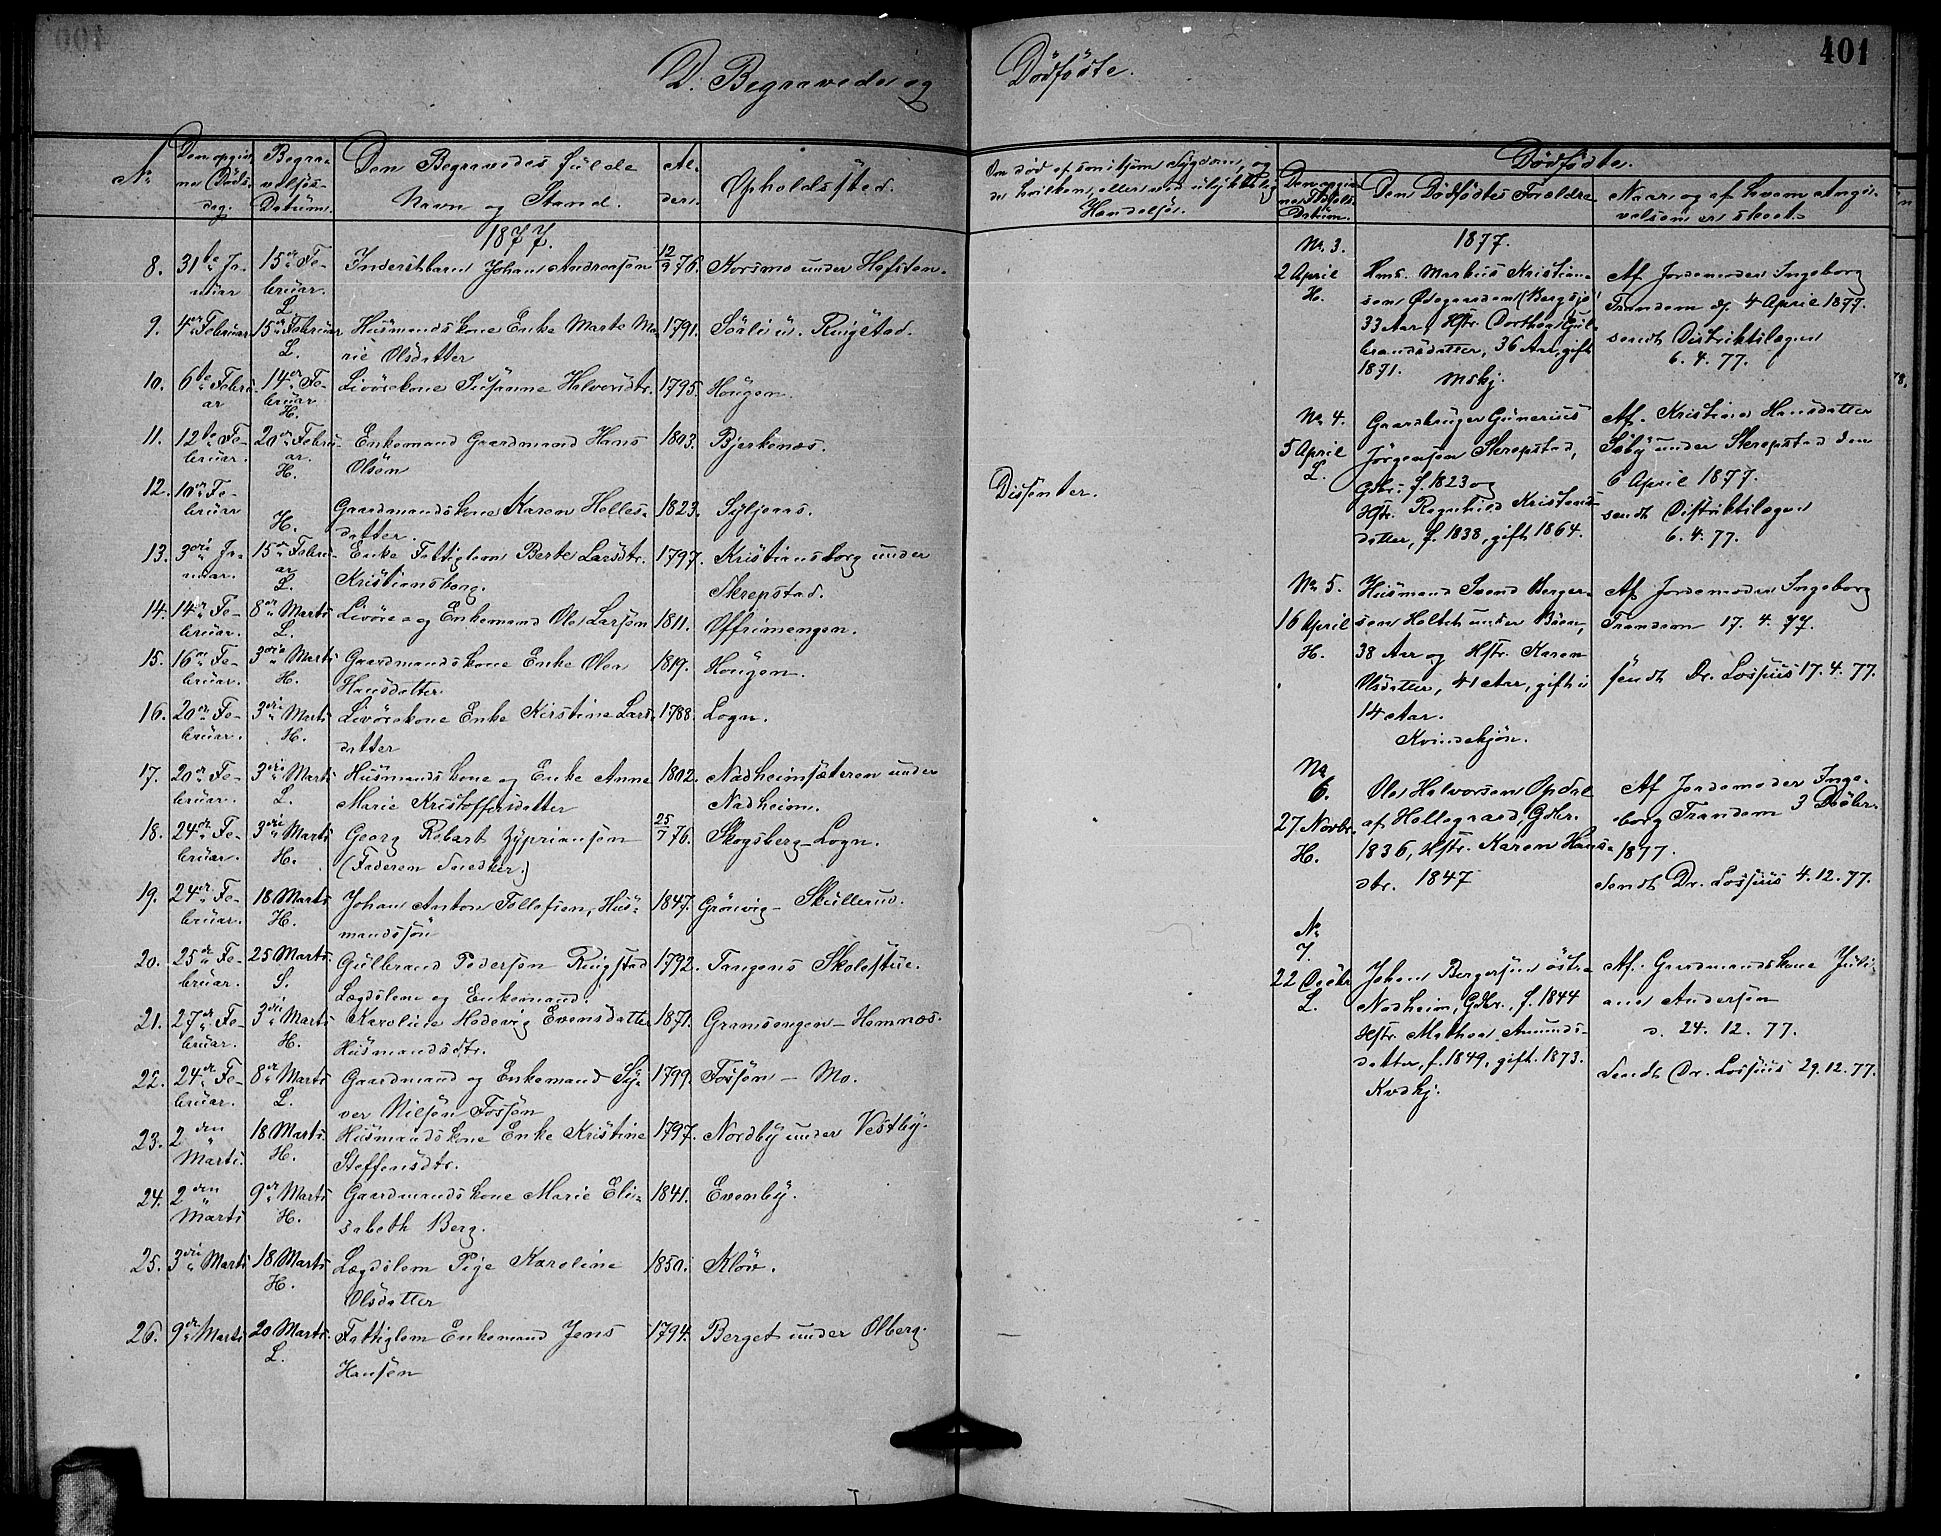 401
D. Begravede og Dödfödte.
No
Den opgivne Dödsdag.
Begravelses-Datum.
Den Begravedes fulde Navn og Stand.
Alder.
Opholdssted.
1877.
8. 31te Januar 15de Februar L. Inderstbarn Johan Andreasen 12/9 76. Korsmo under Hofsten.
9. 4de Februar 15de Februar L. Husmandskone Enke Marte Marie Olsdatter 1791. Söli u. Ringstad.
10. 6te Februar 14de Februar H. Livörekone Susanne Halvorsdtr. 1795. Hougen.
11. 12te Februar. 20de Februar. H. Enkemand Gaardmand Hans Olsön 1803. Bjerkenæs.
12. 10de Februar H. Gaardmandskone Karen Hellesdatter. 1823. Syljeaas. Dissenter.
13. 3die Januar. 15de Februar L. Enke Fattiglem Berte Larsdtr. Kristiansborg. 1797. Kristiansborg under Skrepstad.
14. 14de Februar. 8de Marts L. Livöre- og Enkemand Ole Larsön 1811. Offrimengen.
15. 16de Februar. 3die Marts H. Gaardmandskone Enke Olea Hansdatter 1819. Hougen.
16. 20de Februar. 3die Marts H. Livörekone Enke Kirstine Larsdatter 1788. Logn.
17. 20de Februar. 3die Marts L. Husmandskone og Enke Anne Marie Kristoffersdatter 1802. Nadheimsæteren under Nadheim.
18. 24de Februar. 3die Marts H. Georg Robart Zypriansen (Faderen Snedker.) 25/7 76. Skogsberg-Logn.
19. 24de Februar. 18 Marts H. Johan Anton Tollefsen, Husmandssön 1847. Grönvig- Skullerud.
20. 25de Februar. 25 Marts. S. Gulbrand Pedersön Ringstad Lægdslem og Enkemand. 1792. Tangens Skolestue.
21. 27de Februar. 3die Marts H. Karoline Hedevig Evensdatter Husmandsdtr. 1871. Gransengen - Hemnæs.
22. 24de Februar. 8de Marts L. Gaardmand og Enkemand Syver Nilsön Fossön 1799. Fossön - Mo.
23. 2den Marts. 18 Marts. H. Husmandskone Enke Kristine Steffensdtr. 1797. Nordby under Vestby.
24. 2den Marts 9de Marts H. Gaardmandskone Marie Elisabeth Berg. 1841. Evenby.
25. 3die Marts 18 Marts H. Lægdslem Pige Karoline Olsdatter 1850. Klöv.
26. 9de Marts 20 Marts. L. Fattiglem Enkemand Jens Hansen 1794. Berget under Olberg.
Om död af smitsom Sygdom, og da hvilken, eller ved ulykkelig Hændelse.
Dödfödte.
Den opgivne Födsels-Datum.
Den Dödfödtes Forældre
Naar og af hvem Angivelsen er skeet.
1877.
No. 3.
2 April H.
Hmd. Markus Kristiansen Ödegaarden (Bergsjö) 33 Aar, Hstr. Dorthea Gulbransdatter, 36 Aar, gift 1871. Mskj.
Af Jordemoder Ingeborg Trandem d. 4 April 1877.
sendt Distriktslægen 6. 4. 77.
No. 4.
5 April L.
Gaardbruger Gunerius Jörgensen Skrepstad, Gdbr. f. 1823 og Hstr. Ragnhild Kristensdatter, f. 1838, gift 1864.
Af Kristine Hansdatter Söby under Skrepstad den 6 April 1877.
sendt Distriktslægen 6. 4. 77.
No. 5.
16 April H.
Husmand Svend Bergersen Holtet under Böen, 38 Aar og Hstr. Karen Olsdatter, 41 Aar, gift i 14 Aar.
Kvindekjön.
Af Jordemoder Ingeborg Trandem 17. 4. 77.
sendt Dr. Lossius 17. 4. 77.
No 6.
27 Novbr. H.
Ole Halvorsen Opdal af Hellegaard, Gdbr. 1836, Hstr. Karen Hansdtr. 1847
Af Jordemoder Ingeborg Trandem 3 Decbr. 1877.
Sendt Dr. Lossius 4. 12. 77.
No 7.
22 Decbr L.
Johan Bergersen östre Nadheim, Gdbr., f. 1844 Hstr. Mathea Amundsdatter, f. 1849, gift. 1873.
Kvdkj.
Af. Gaardmandskone Juliane Andersön d. 24. 12. 77.
Sendt Dr. Lossius 29. 12. 77.